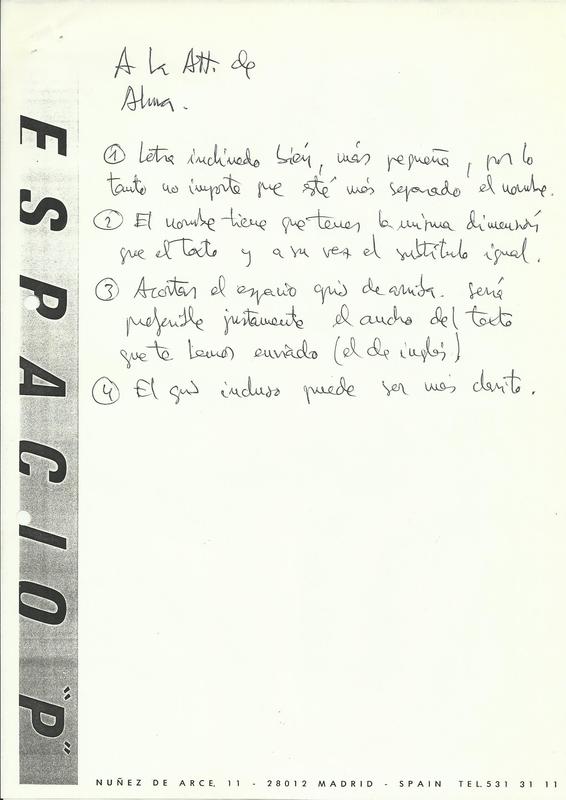 A la Att. de
Alma.
① Letra inclinada bien, más pequeña, por lo
tanto no importa que esté más separado el nombre.
② El nombre tiene que tener la misma dimensión
que el texto y a su vez el subtítulo igual.
③ Acortar el espacio gris de arriba. sería
preferible justamente el ancho del texto
que te hemos enviado (el de inglés)
④ El gris incluso puede ser más clarito.
ESPACIO "P"
NUÑEZ DE ARCE, 11 - 28012 MADRID - SPAIN TEL.531 31 11